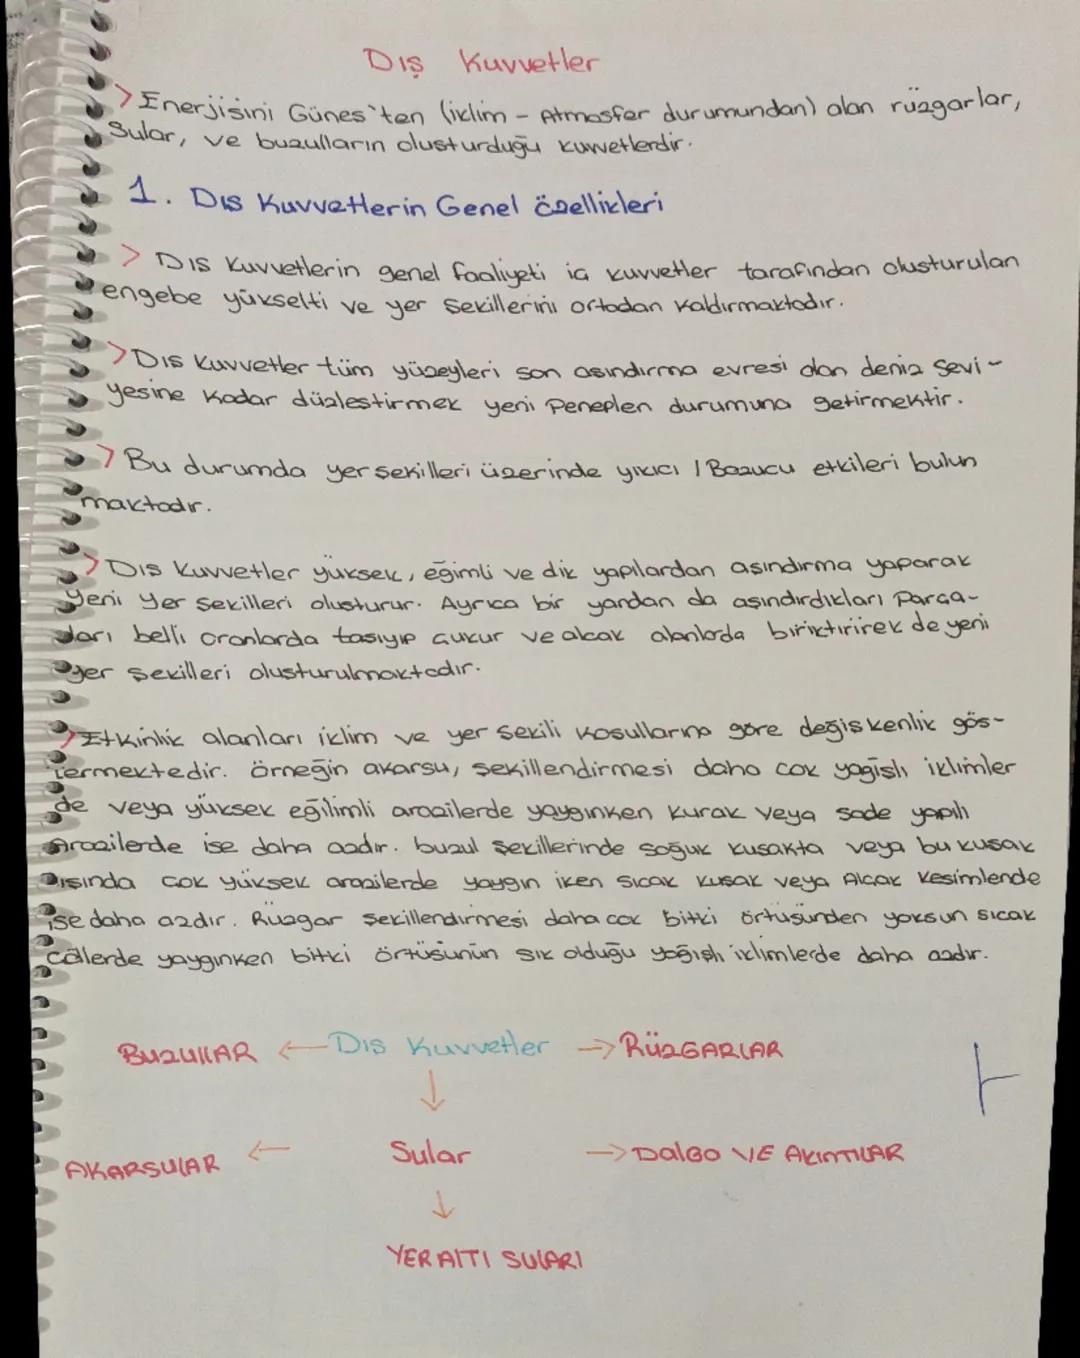 Dış Kuvvetler
> Enerjisini Günes'ten (iklim - Atmosfer durumundan) alan rüzgarlar,
Sular, ve buzulların olusturduğu kuvvetlerdir.
1. Dıs Kuvvetlerin Genel özellikleri
> Dıs Kuvvetlerin genel faaliyeti ic kuvvetler tarafından olusturulan
engebe yükselti ve yer sekillerini ortadan kaldırmaktadır.
> Dıs Kuvvetler tüm yüzeyleri son asındırma evresi olan deniz sevi-
yesine kadar düzlestirmek yeni Peneplen durumuna getirmektir.
> Bu durumda yer sekilleri üzerinde yıkıcı / Bozucu etkileri bulun
maktadır.
> Dıs Kuvvetler yüksek, eğimli ve dik yapılardan aşındırma yaparak
yeni yer sekilleri olusturur. Ayrıca bir yandan da aşındırdıkları Parca-
ları belli oranlarda tasıyıp cukur ve alcak alanlarda biriktirirek de yeni
yer şekilleri olusturulmaktadır.
> Etkinlik alanları iklim ve yer sekili kosullarına göre değiskenlik gös-
termektedir. örneğin akarsu, sekillendirmesi daha cok yagislı iklimler
de veya yüksek eğilimli arazilerde yaygınken kurak veya sade yapılı
Arazilerde ise daha azdır. buzul sekillerinde soğuk kusakta veya bu kusak
Dısında cok yüksek arazilerde yaygın iken sıcak kusak veya Alcak Kesimlende
ise daha azdır. Rüzgar sekillendirmesi daha cok bitki örtüsünden yoksun sıcak
cöllerde yaygınken bitki örtüsünün sık olduğu yağışlı iklimlerde daha azdır.
BUZULLAR ← Dıs Kuvvetler → RÜZGARLAR
↓
AKARSULAR ← Sular → DALGA VE AKINTILAR
↓
YER ALTI SULARI